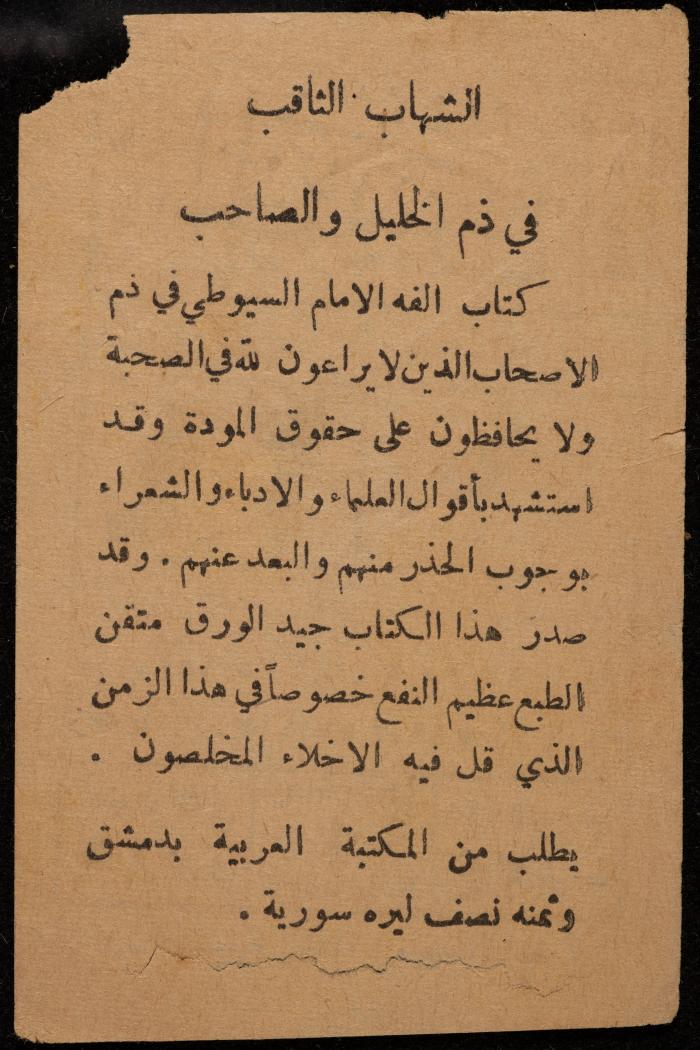 الشهاب الثاقب
في ذم الخليل والصاحب
كتاب الفه الامام السيوطي في ذم
الاصحاب الذين لا يراعون لله في الصحبة
ولا يحافظون على حقوق المودة وقد
استشهد بأقوال العلماء والادباء والشعراء
بوجوب الحذر منهم والبعد عنهم . وقد
صدر هذا الكتاب جيد الورق متقن
الطبع عظيم النفع خصوصاً في هذا الزمن
الذي قل فيه الاخلاء المخلصون .
يطلب من المكتبة العربية بدمشق
وثمنه نصف ليره سورية .